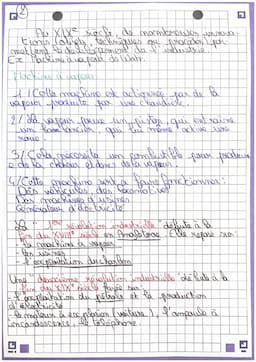 (2)
Au XIXe siècle, de nombreuses innova
tions (objets, techniques ou procédés) per
mettent le développement de l'industrie
Ex : Machine à vapeur de Watt.
Machine à vapeur
1/ Cette machine est actionnée par de la
vapeur produite par une chaudière.
2/ La vapeur pousse un piston qui entraîne
un balancier, qui lui même active une
roue.
3/ Cela nécessite un combustible pour produire
de la chaleur et donc de la vapeur.
4/ Cette machine sert à faire fonctionner :
Des véhicules, des locomotives
Des machines d'usines
Générateur d'électricité
La "1ère révolution industrielle" débute à la
fin du XVIIIe siècle en Angleterre. Elle repose sur :
- la machine à vapeur
- les usines
- l'exploitation du charbon
Une "deuxième révolution industrielle" débute à la
fin du XIXe siècle basée sur :
- l'exploitation du pétrole et la production
d'électricité
- le moteur à explosion (voiture), l'ampoule à
incandescence, le téléphone